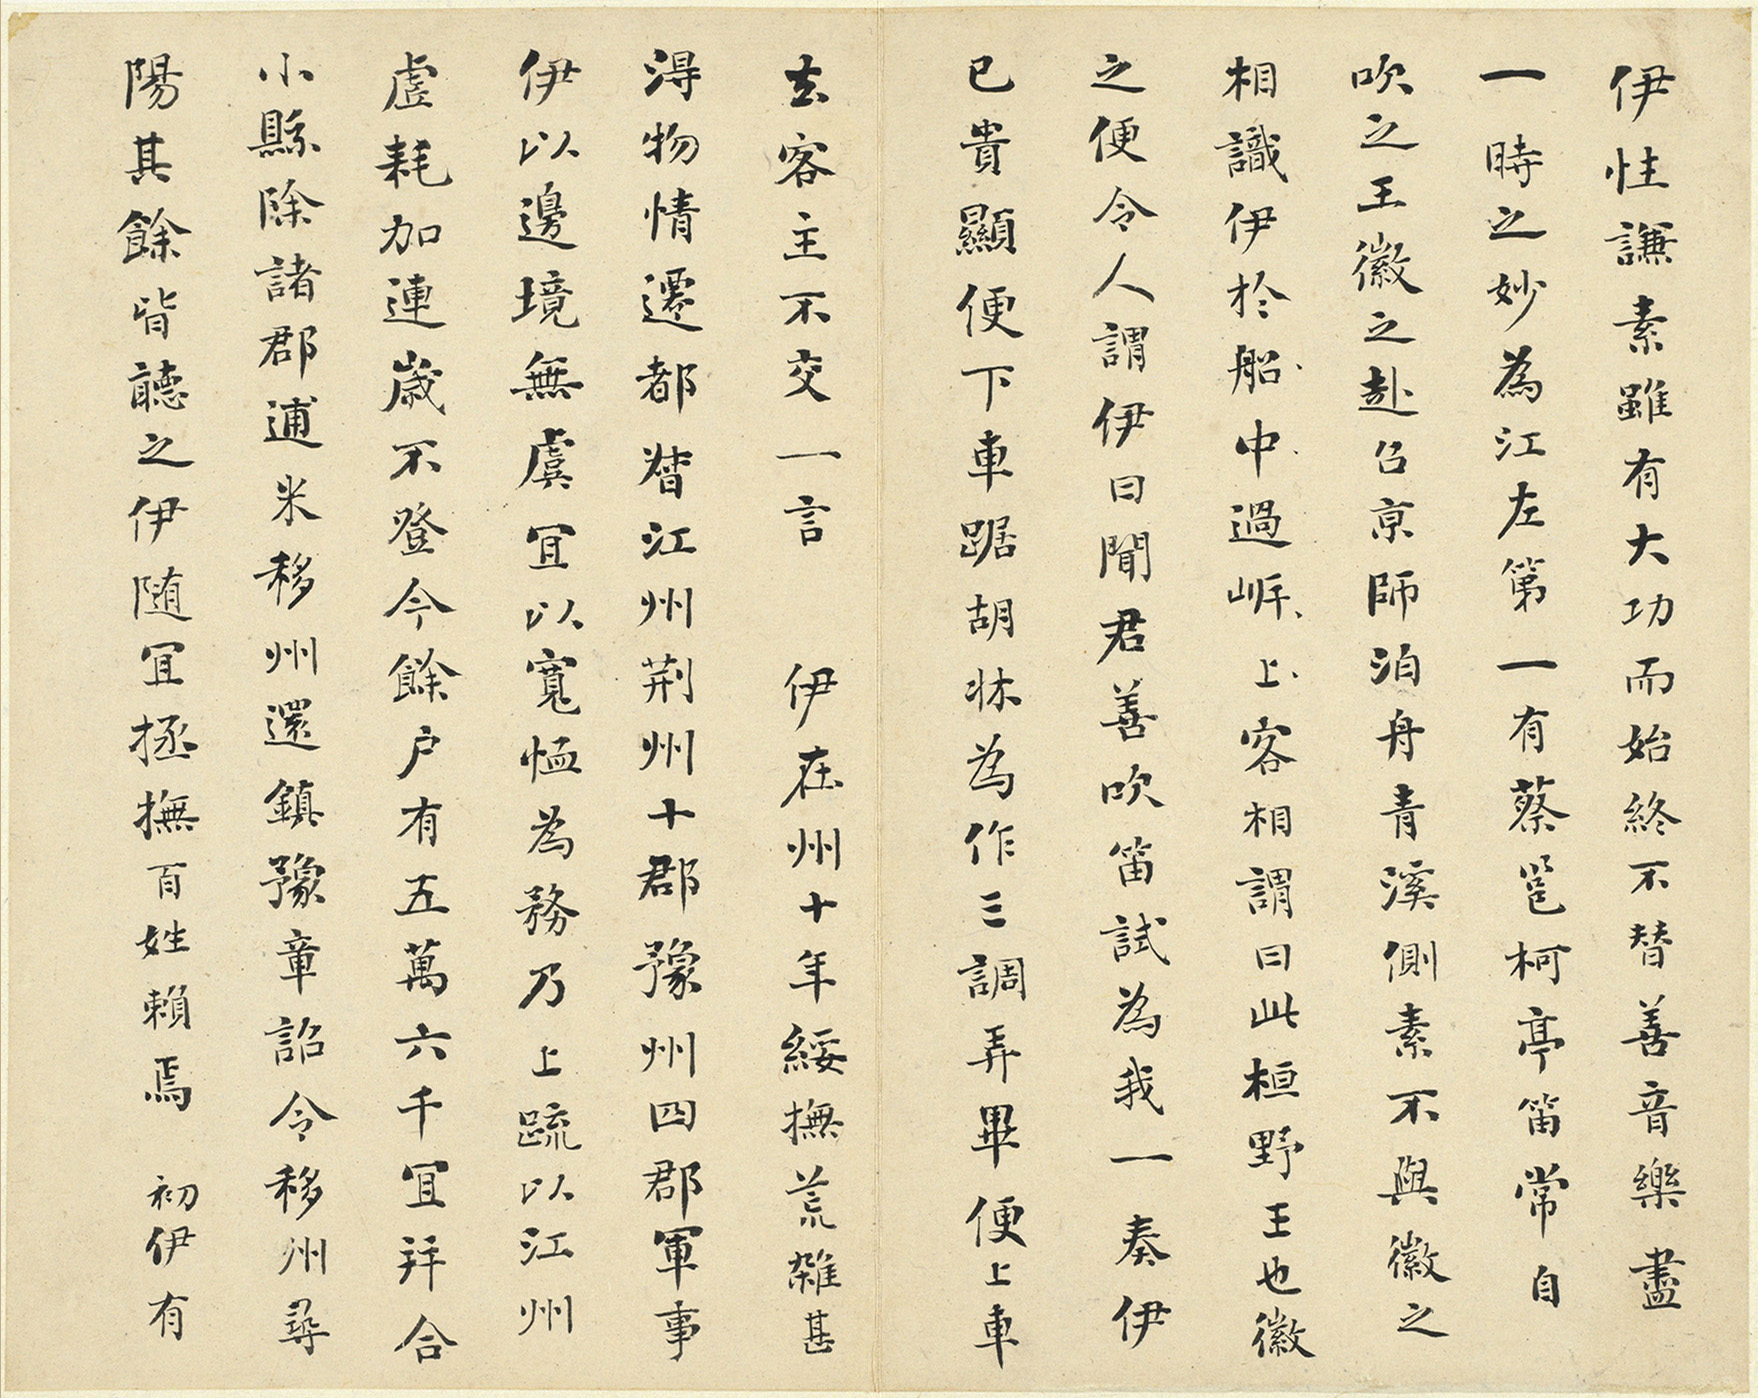 伊性謙素雖有大功而始終不替善音樂盡
一時之妙為江左第一有蔡邕柯亭笛常自
吹之王徽之赴召京師泊舟青溪側素不與徽之
相識伊於船中過岸上客相謂曰此桓野王也徽
之便令人謂伊曰聞君善吹笛試為我一奏伊
已貴顯便下車踞胡牀為作三調弄畢便上車
去客主不交一言　伊在州十年綏撫荒雜甚
得物情遷都督江州荆州十郡豫州四郡軍事
伊以邊境無虞宜以寬恤為務乃上疏以江州
虛耗加連歲不登今餘户有五萬六千宜并合
小縣除諸郡逋米移州還鎮豫章詔令移州尋
陽其餘皆聽之伊随宜拯撫百姓賴焉　初伊有